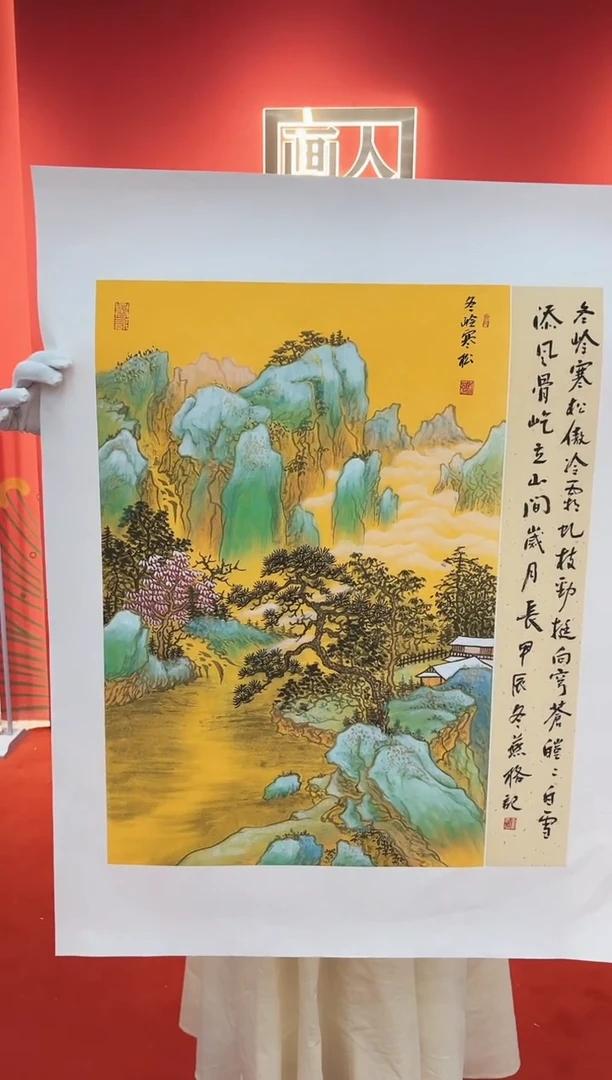 人
冬岭寒松
冬岭寒松傲冷霜虬枝劲挺向穹苍皑々白雪
添风骨屹立山间歲月長甲辰冬燕格记